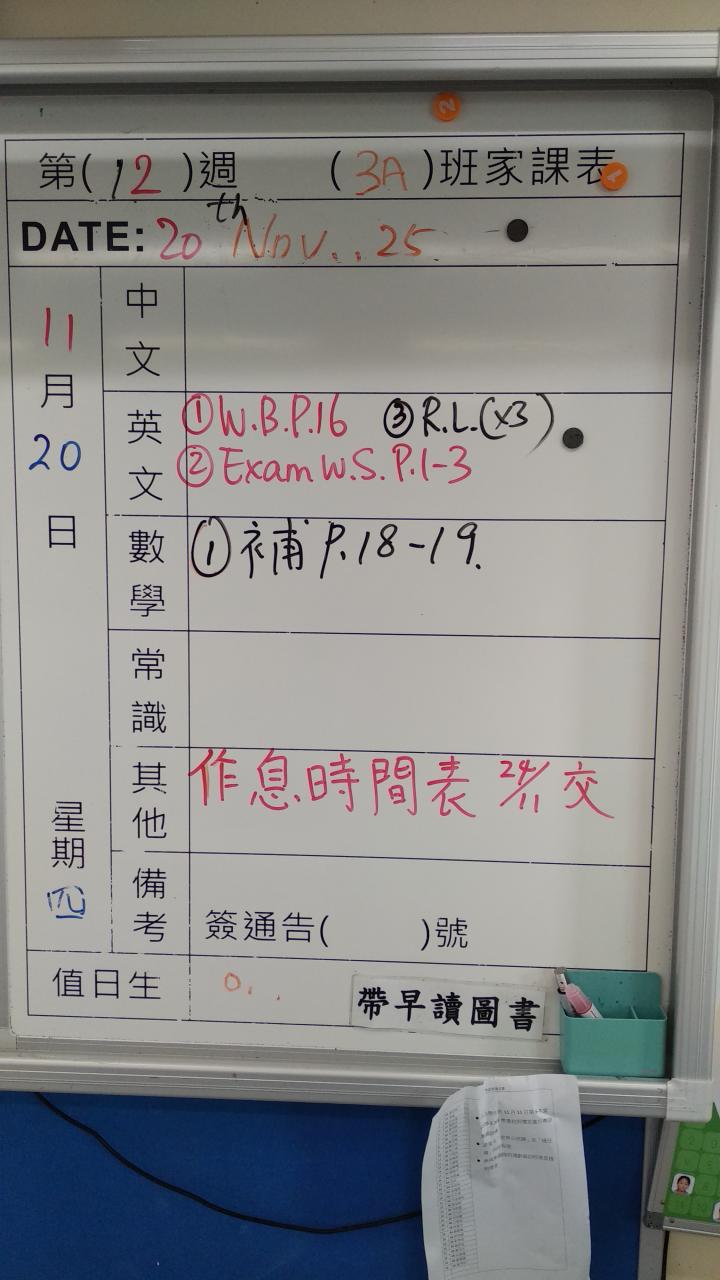 第(12)週 (3A)班家課表
DATE: 20th Nov..25
11月20日 星期四
中文
英文 ①W.B.P.16 ③R.L.(x3)
②Exam W.S. P.1-3
數學 ①補 P.18-19.
常識
其他 作息時間表 24/11 交
備考 簽通告( )號
值日生
帶早讀圖書
2
1